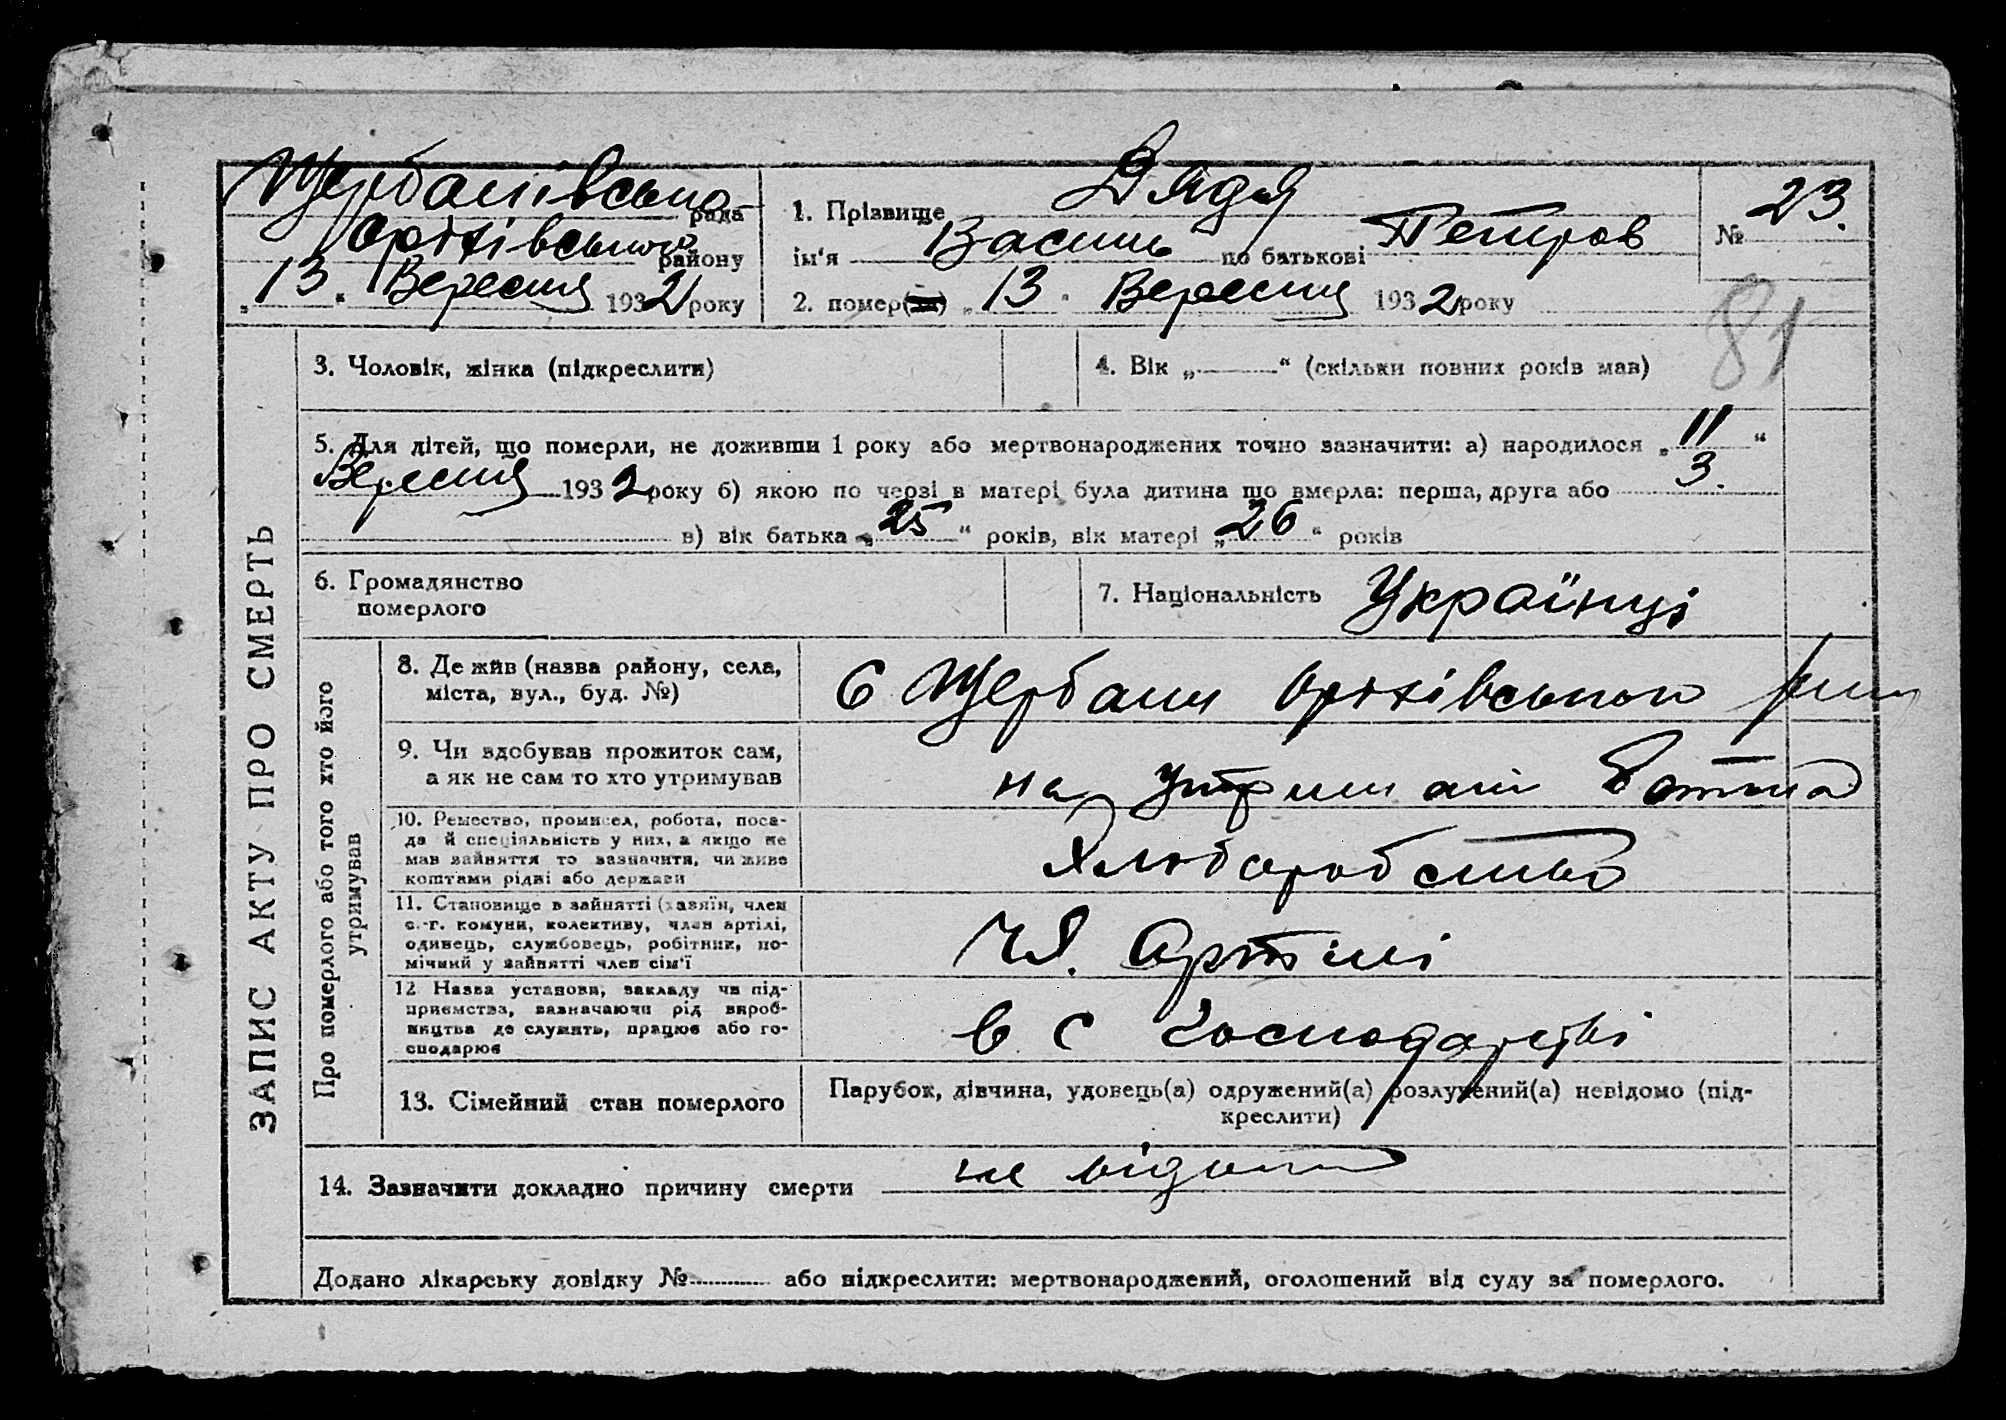 Щербанівська рада
Оріхівського району
„13“ Вересня 1932 року
1. Прізвище Дядя
ім'я Василь по батькові Петров
2. помер(ла) „13“ Вересня 1932 року
№ 23.
81
3. Чоловік, жінка (підкреслити)
4. Вік „———“ (скільки повних років мав)
5. Для дітей, що померли, не доживши 1 року або мертвонароджених точно зазначити: а) народилося „11“
Вересня 1932 року б) якою по черзі в матері була дитина що вмерла: перша, друга або 3.
в) вік батька „25“ років, вік матері „26“ років
6. Громадянство
померлого
7. Національність Українці
ЗАПИС АКТУ ПРО СМЕРТЬ
Про померлого або того хто його
утримував
8. Де жив (назва району, села,
міста, вул., буд. №)
С Щербани Оріхівського
9. Чи здобував прожиток сам,
а як не сам то хто утримував
на утримані батька
10. Ремество, промисел, робота, поса-
да й спеціяльність у них, а якщо не
мав зайняття то зазначити, чи живе
коштами рідні або держави
Хліборобство
11. Становище в зайнятті (хазяїн, член
с.-г. комуни, колективу, член артілі,
одинець, службовець, робітник, по-
мічний у зайнятті член сім'ї
чл. Артілі
12 Назва установи, закладу чи під-
приємства, зазначаючи рід вироб-
ництва де служить, працює або го-
сподарює
в с господарстві
13. Сімейний стан померлого
Парубок, дівчина, удовець(а) одружений(а) розлучений(а) невідомо (під-
креслити)
14. Зазначити докладно причину смерти не відома
Додано лікарську довідку №........... або підкреслити: мертвонароджений, оголошений від суду за померлого.